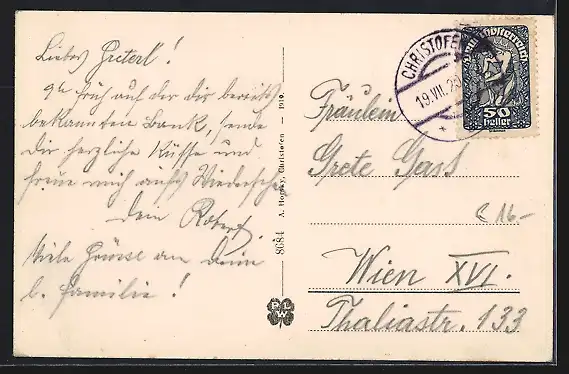 Liebes Greterl!
9h früh auf der dir bereits
bekannten Bank, sende
Dir herzliche Küsse und
freue mich aufs Wiedersehen
dein Robert
Viele Grüsse an deine
l. Familie!
8084 A. Christofen — 1919.
P L W
CHRISTOFEN
19.VII.20
Deutschösterreich
50
heller
Fräulein
Grete Gass
€ 16-
Wien XVI.
Thaliastr. 133